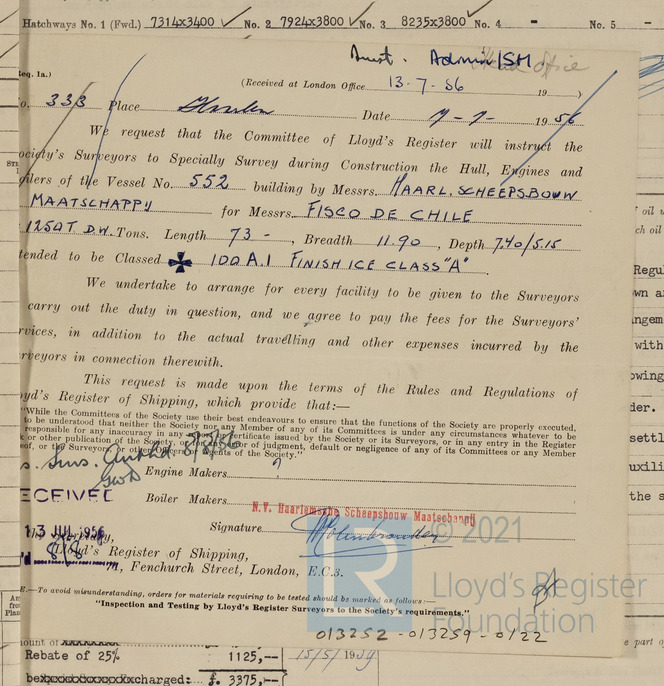 Hatchways No. 1 (Fwd.) 7314x3400 No. 2 7924x3800 No. 3 8235x3800 No. 4 - No. 5 -
Amst. Admin ISM
office
eq. 1a.)
(Received at London Office 13-7-56 19 )
o. 333 Place Haarlem Date 9-7- 1956
We request that the Committee of Lloyd's Register will instruct the
ociety's Surveyors to Specially Survey during Construction the Hull, Engines and
oilers of the Vessel No. 552 building by Messrs. HAARL. SCHEEPSBOUW
MAATSCHAPPY for Messrs. FISCO DE CHILE
1250T D.W. Tons. Length 73 - , Breadth 11.90 , Depth 7.40/5.15
tended to be Classed ✠ 100 A.1 FINISH ICE CLASS "A"
We undertake to arrange for every facility to be given to the Surveyors
carry out the duty in question, and we agree to pay the fees for the Surveyors'
rvices, in addition to the actual travelling and other expenses incurred by the
rveyors in connection therewith.
This request is made upon the terms of the Rules and Regulations of
yd's Register of Shipping, which provide that:—
"While the Committees of the Society use their best endeavours to ensure that the functions of the Society are properly executed,
to be understood that neither the Society nor any Member of any of its Committees is under any circumstances whatever to be
responsible for any inaccuracy in any certificate issued by the Society or its Surveyors, or in any entry in the Register
or other publication of the Society, or for any error of judgment, default or negligence of any of its Committees or any Member
of, or the Surveyors or other Officers or Agents of the Society."
Engine Makers
ECEIVED
Boiler Makers
N.V. Haarlemsche Scheepsbouw Maatschappij
13 JUL 1956
Signature
Lloyd's Register of Shipping,
71, Fenchurch Street, London, E.C.3.
E.—To avoid misunderstanding, orders for materials requiring to be tested should be marked as follows:—
"Inspection and Testing by Lloyd's Register Surveyors to the Society's requirements."
© 2021
Lloyd's Register
Foundation
013252-013259-0122
Rebate of 25% 1125,-- 15/5/1959
charged: £. 3375,--